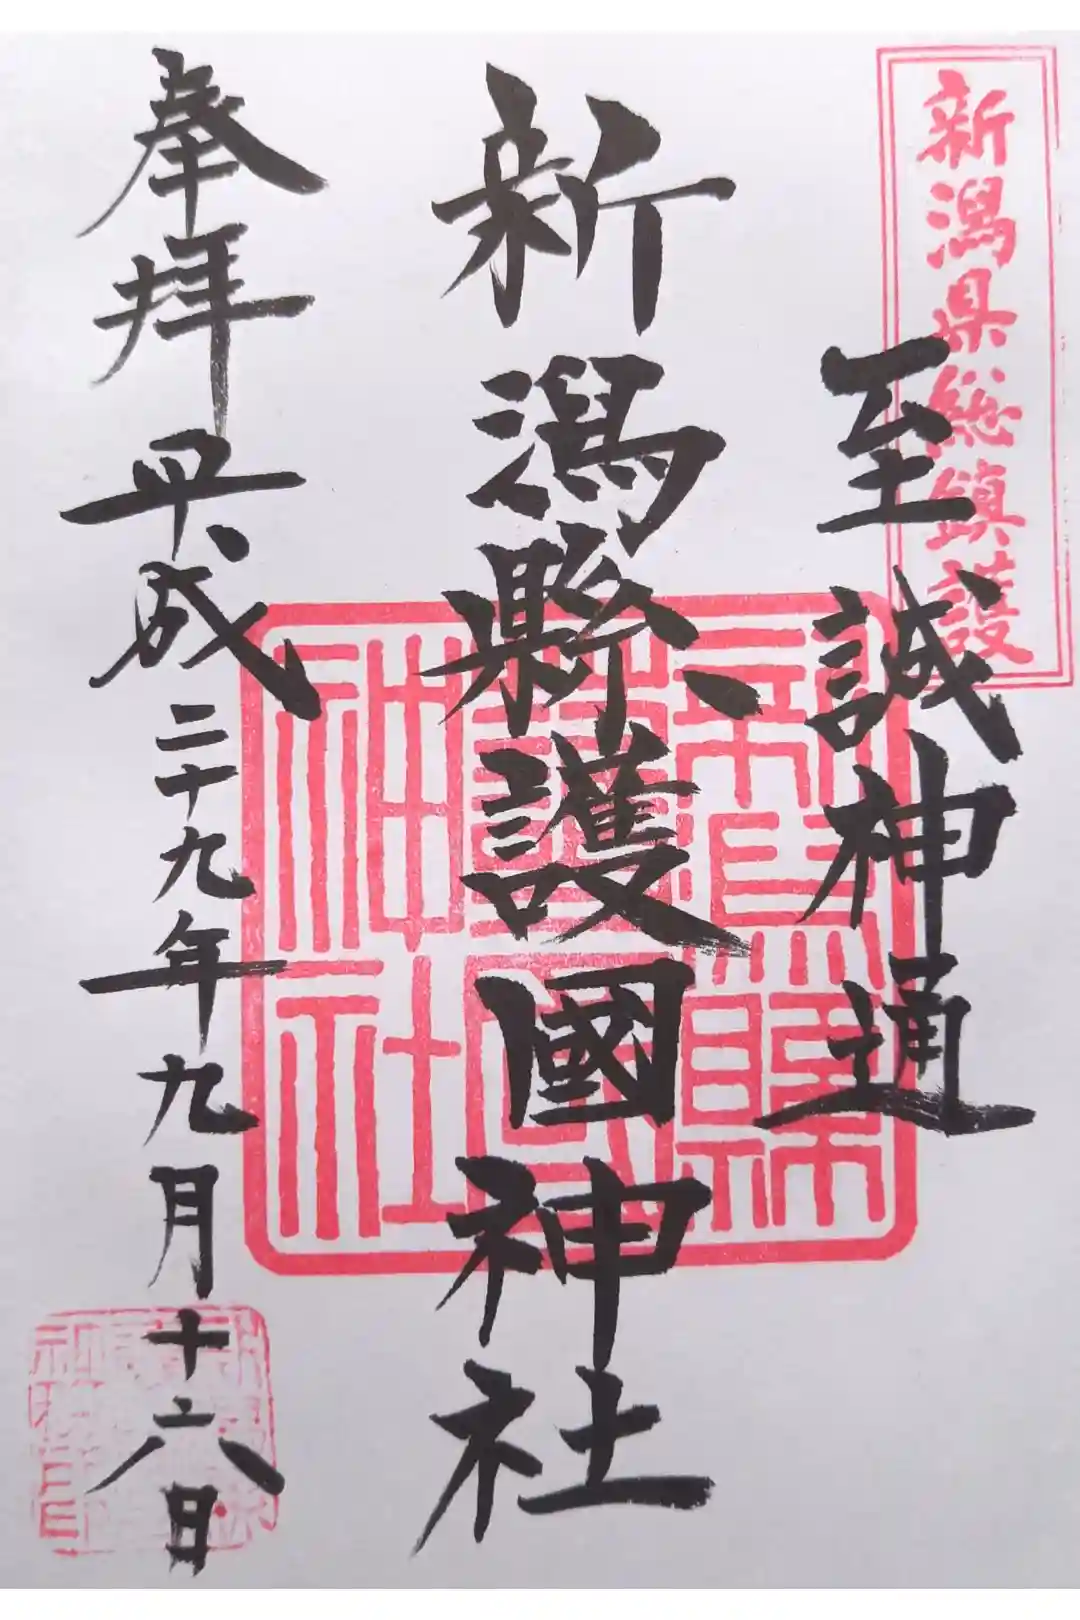 新潟県総鎮護
至誠神通
新潟縣護國神社
奉拝 平成二十九年九月十六日
新潟縣護國神社